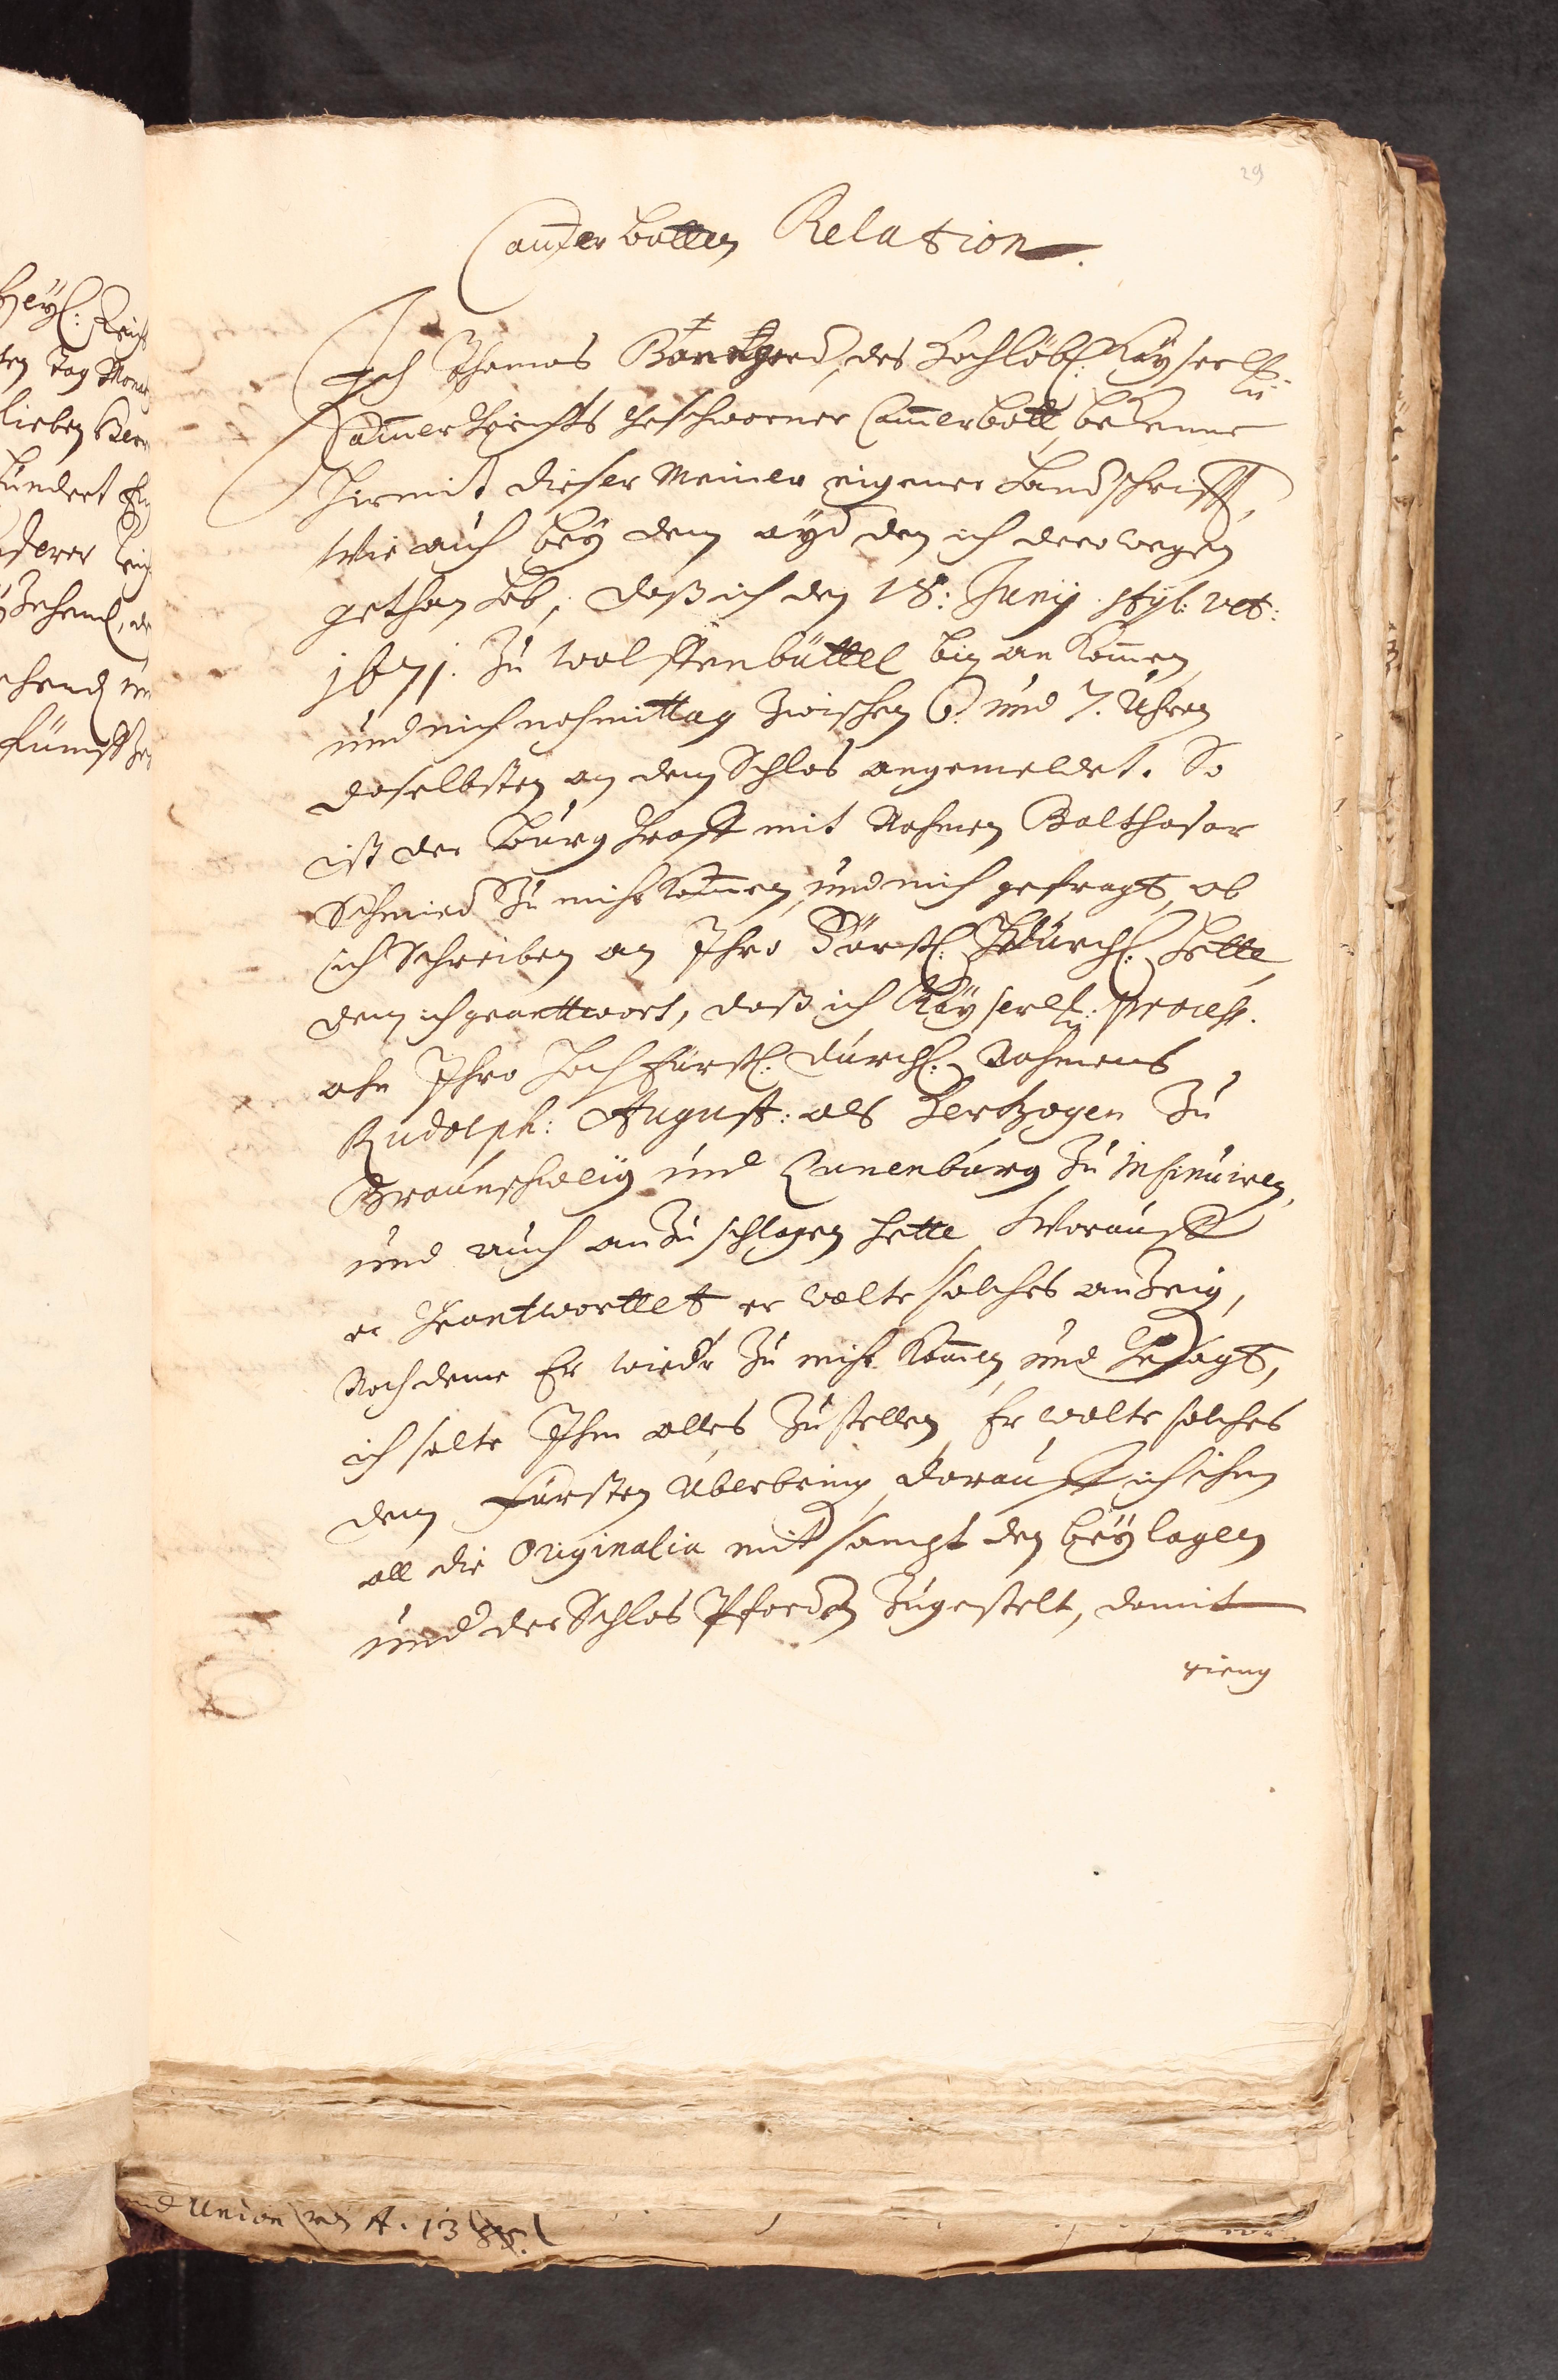 29
Cam̄er botten Relation.
Ich Thomas des Hochlöbl: Kayserl:
Cam̄er Gerichts geschworner Cam̄erbott, bekenne
hirmit dieser meiner eigener Handschrifft,
wie auch bey dem ayd den ich derowegen
gethan hab, daß ich den 18: Junij styl: vet:
1671. zu Wolffenbüttel bin an kom̄en,
und mich nachmittag zwischen 6. und 7. Uhren
daselbsten an dem Schlos angemeldet. So
ist der Burg Graff mit Nahmen Balthasar
Schmied zu mihr kom̄en, und mich gefragt, ob
ich Schreiben an Ihro Fürstl: Durchl: hette,
dem ich geanttwort, daß ich Kayserl: process.
ahn Ihro Hoch Fürstl: Durchl: Nahmens
Rudolph: August: als Hertzogen zu
Braunschweig und Lunenburg zu insinuiren,
und auch an zu schlagen hette, Worauff
er Geantworttet er wolte solches anzeig,
Nach deme Er wieder zu mihr kom̄en, und Gesagt,
ich solte Ihm alles zustellen, Er wolte solches
dem Fürsten Uberbring, darauff ich ihm
all die Originalia mit sampt den beylagen
und der Schlos Pforden zugestelt, damit
gieng
Heyl: Reich
ten Tag Mona
lieben Herr
hundert